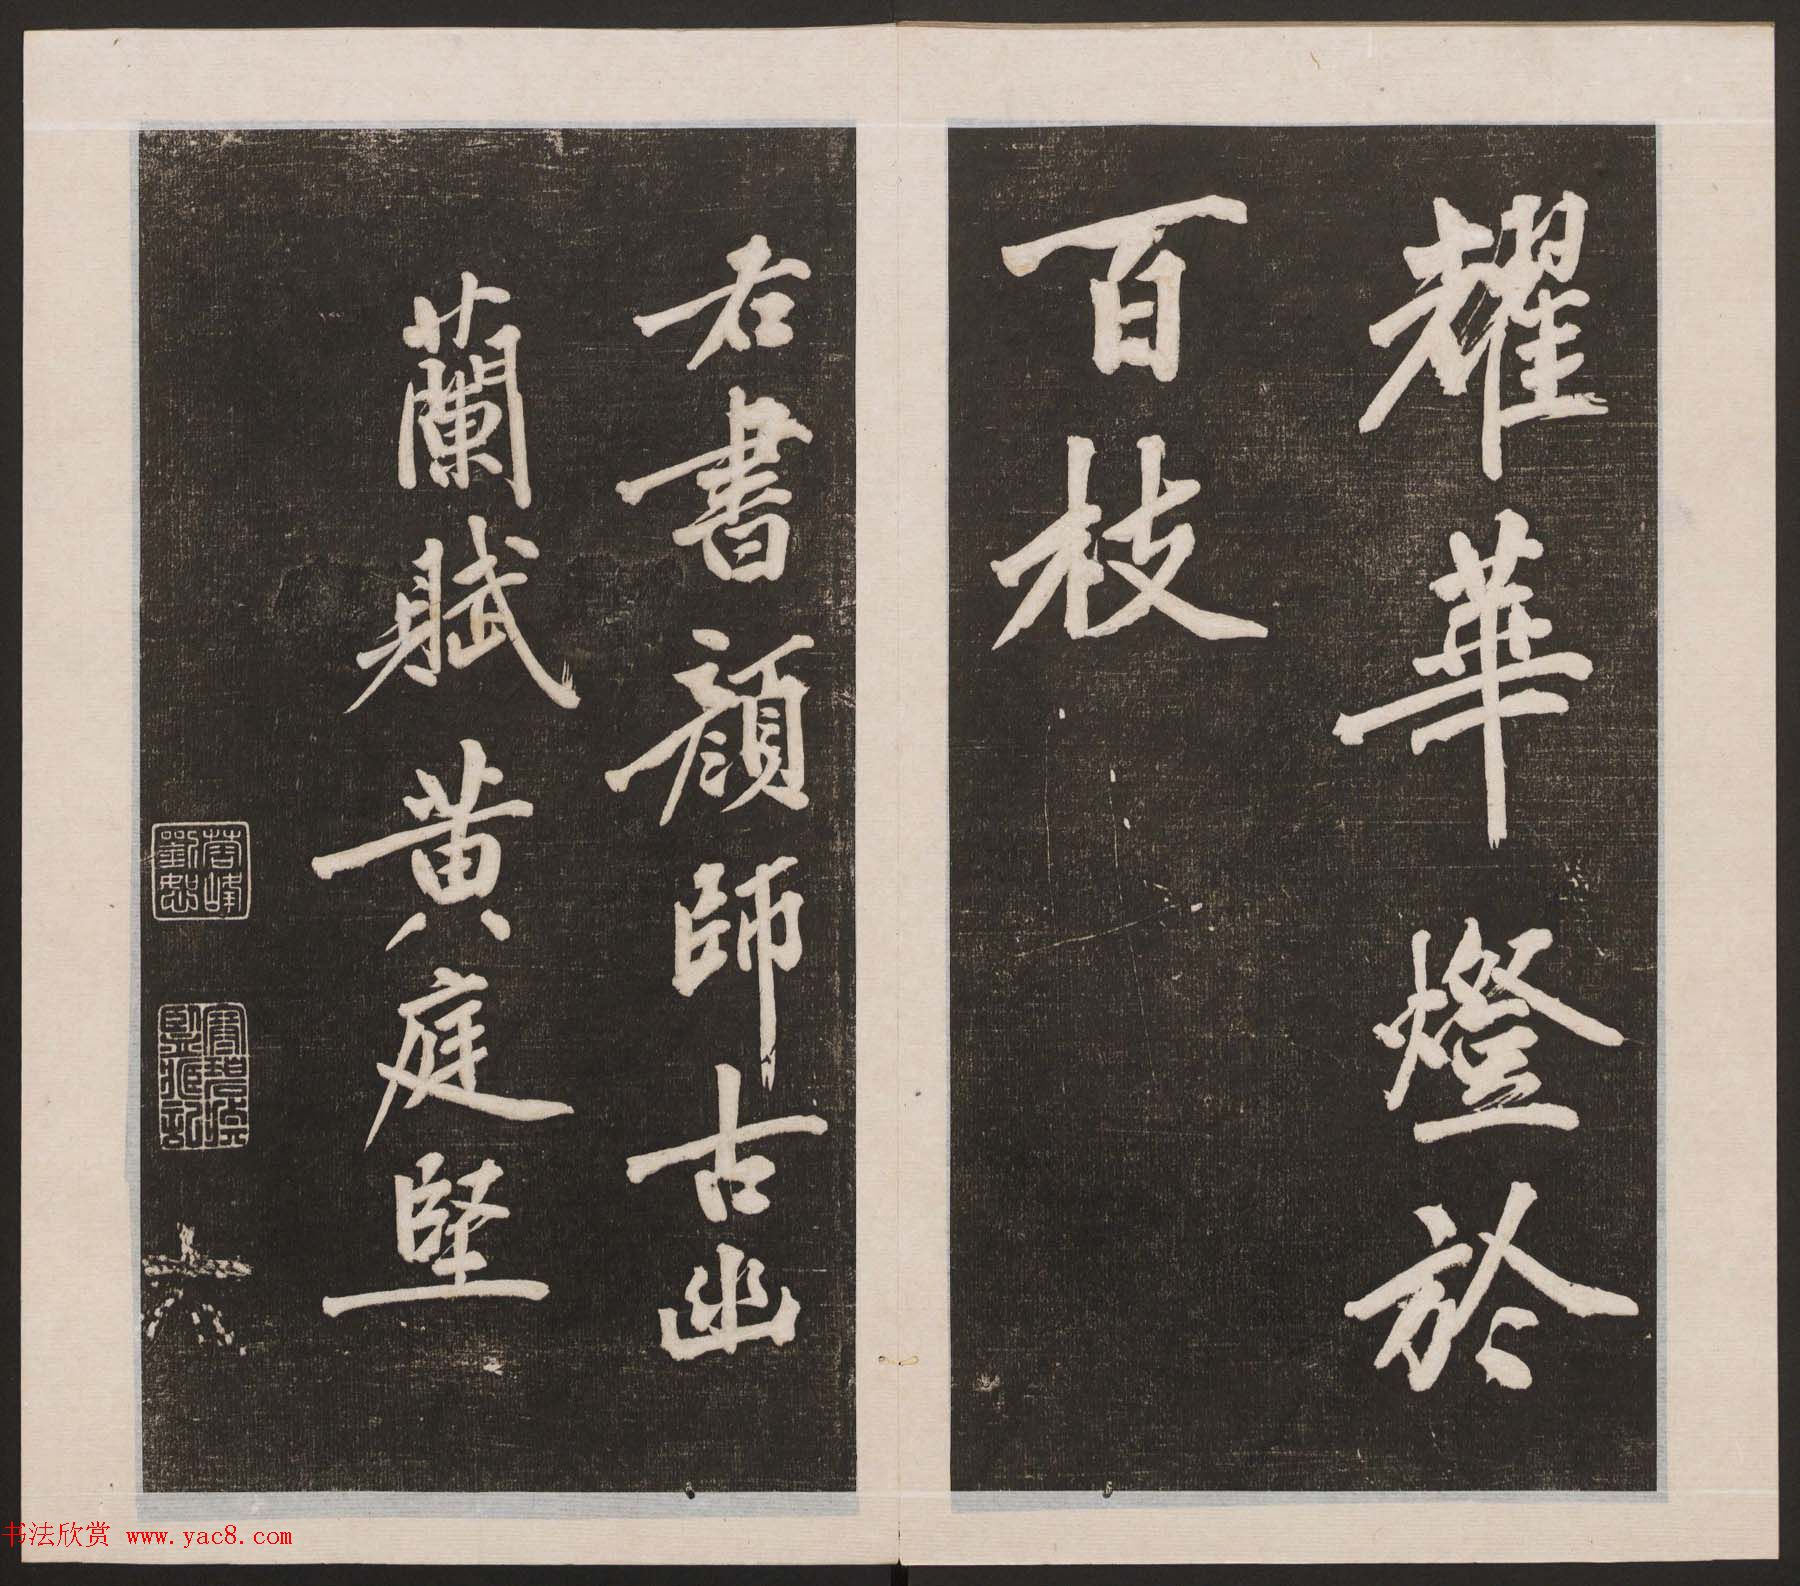 耀華燈於
百枝
右書顏師古幽
蘭賦 黄庭堅
书法欣赏 www.yac8.com